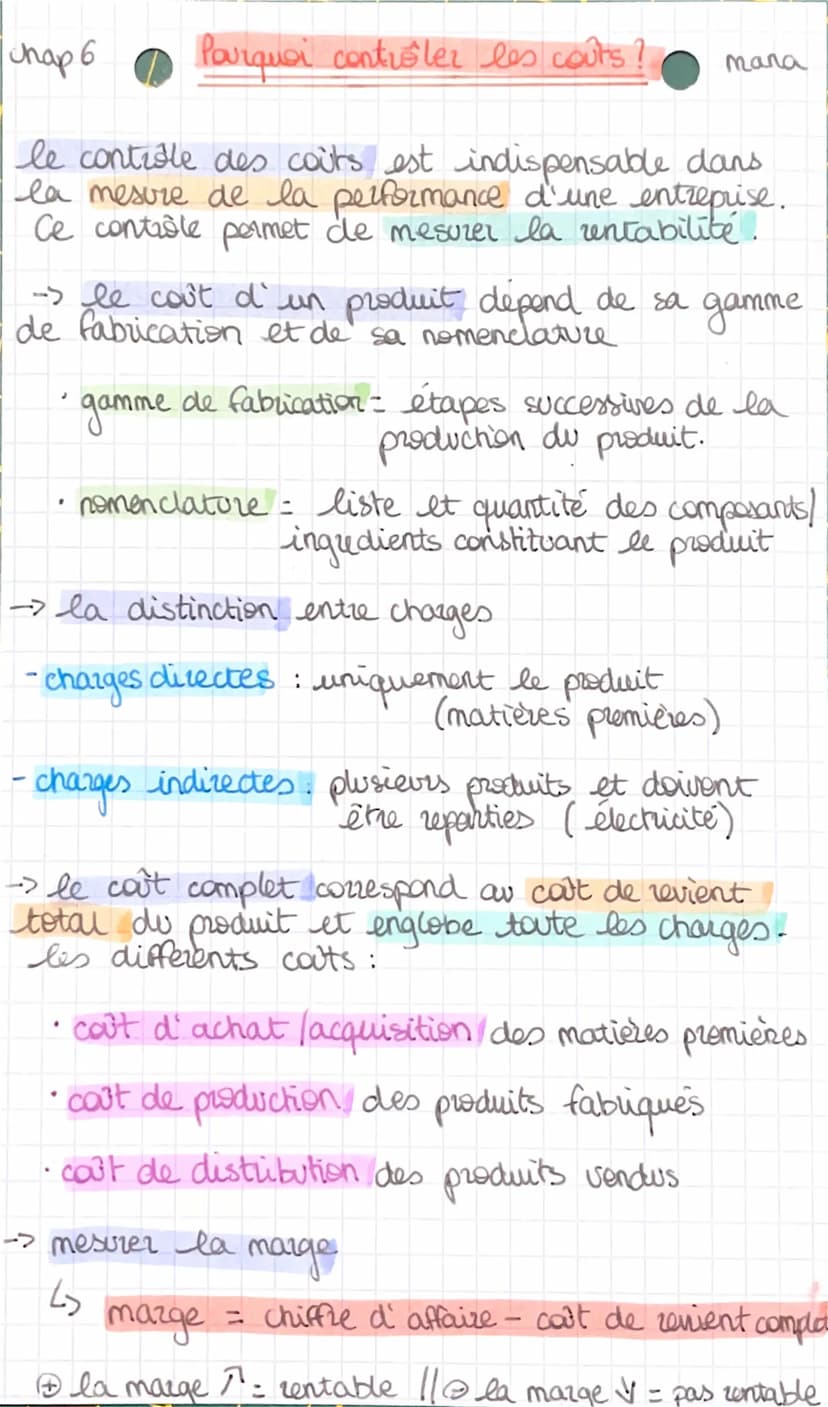 chap 6 Pourquoi contrôler les coûts? mana
le contrôle des coûts est indispensable dans
la mesure de la performance d'une entreprise.
Ce contrôle permet de mesurer la rentabilité.
-> le coût d'un produit dépend de sa gamme
de fabrication et de sa nomenclature
· gamme de fabrication = étapes successives de la
production du produit.
· nomenclature = liste et quantité des composants/
ingrédients constituant le produit
-> la distinction entre charges
- charges directes : uniquement le produit
(matières premières)
- charges indirectes : plusieurs produits et doivent
être reparties (électricité)
-> le coût complet correspond au coût de revient
total du produit et englobe toute les charges.
les différents coûts :
· coût d'achat/acquisition des matières premières
· coût de production des produits fabriqués
· coût de distribution des produits vendus
-> mesurer la marge
↳ marge = chiffre d'affaire - coût de revient complet
⊕ la marge ↗ = rentable // ⊖ la marge ↓ = pas rentable